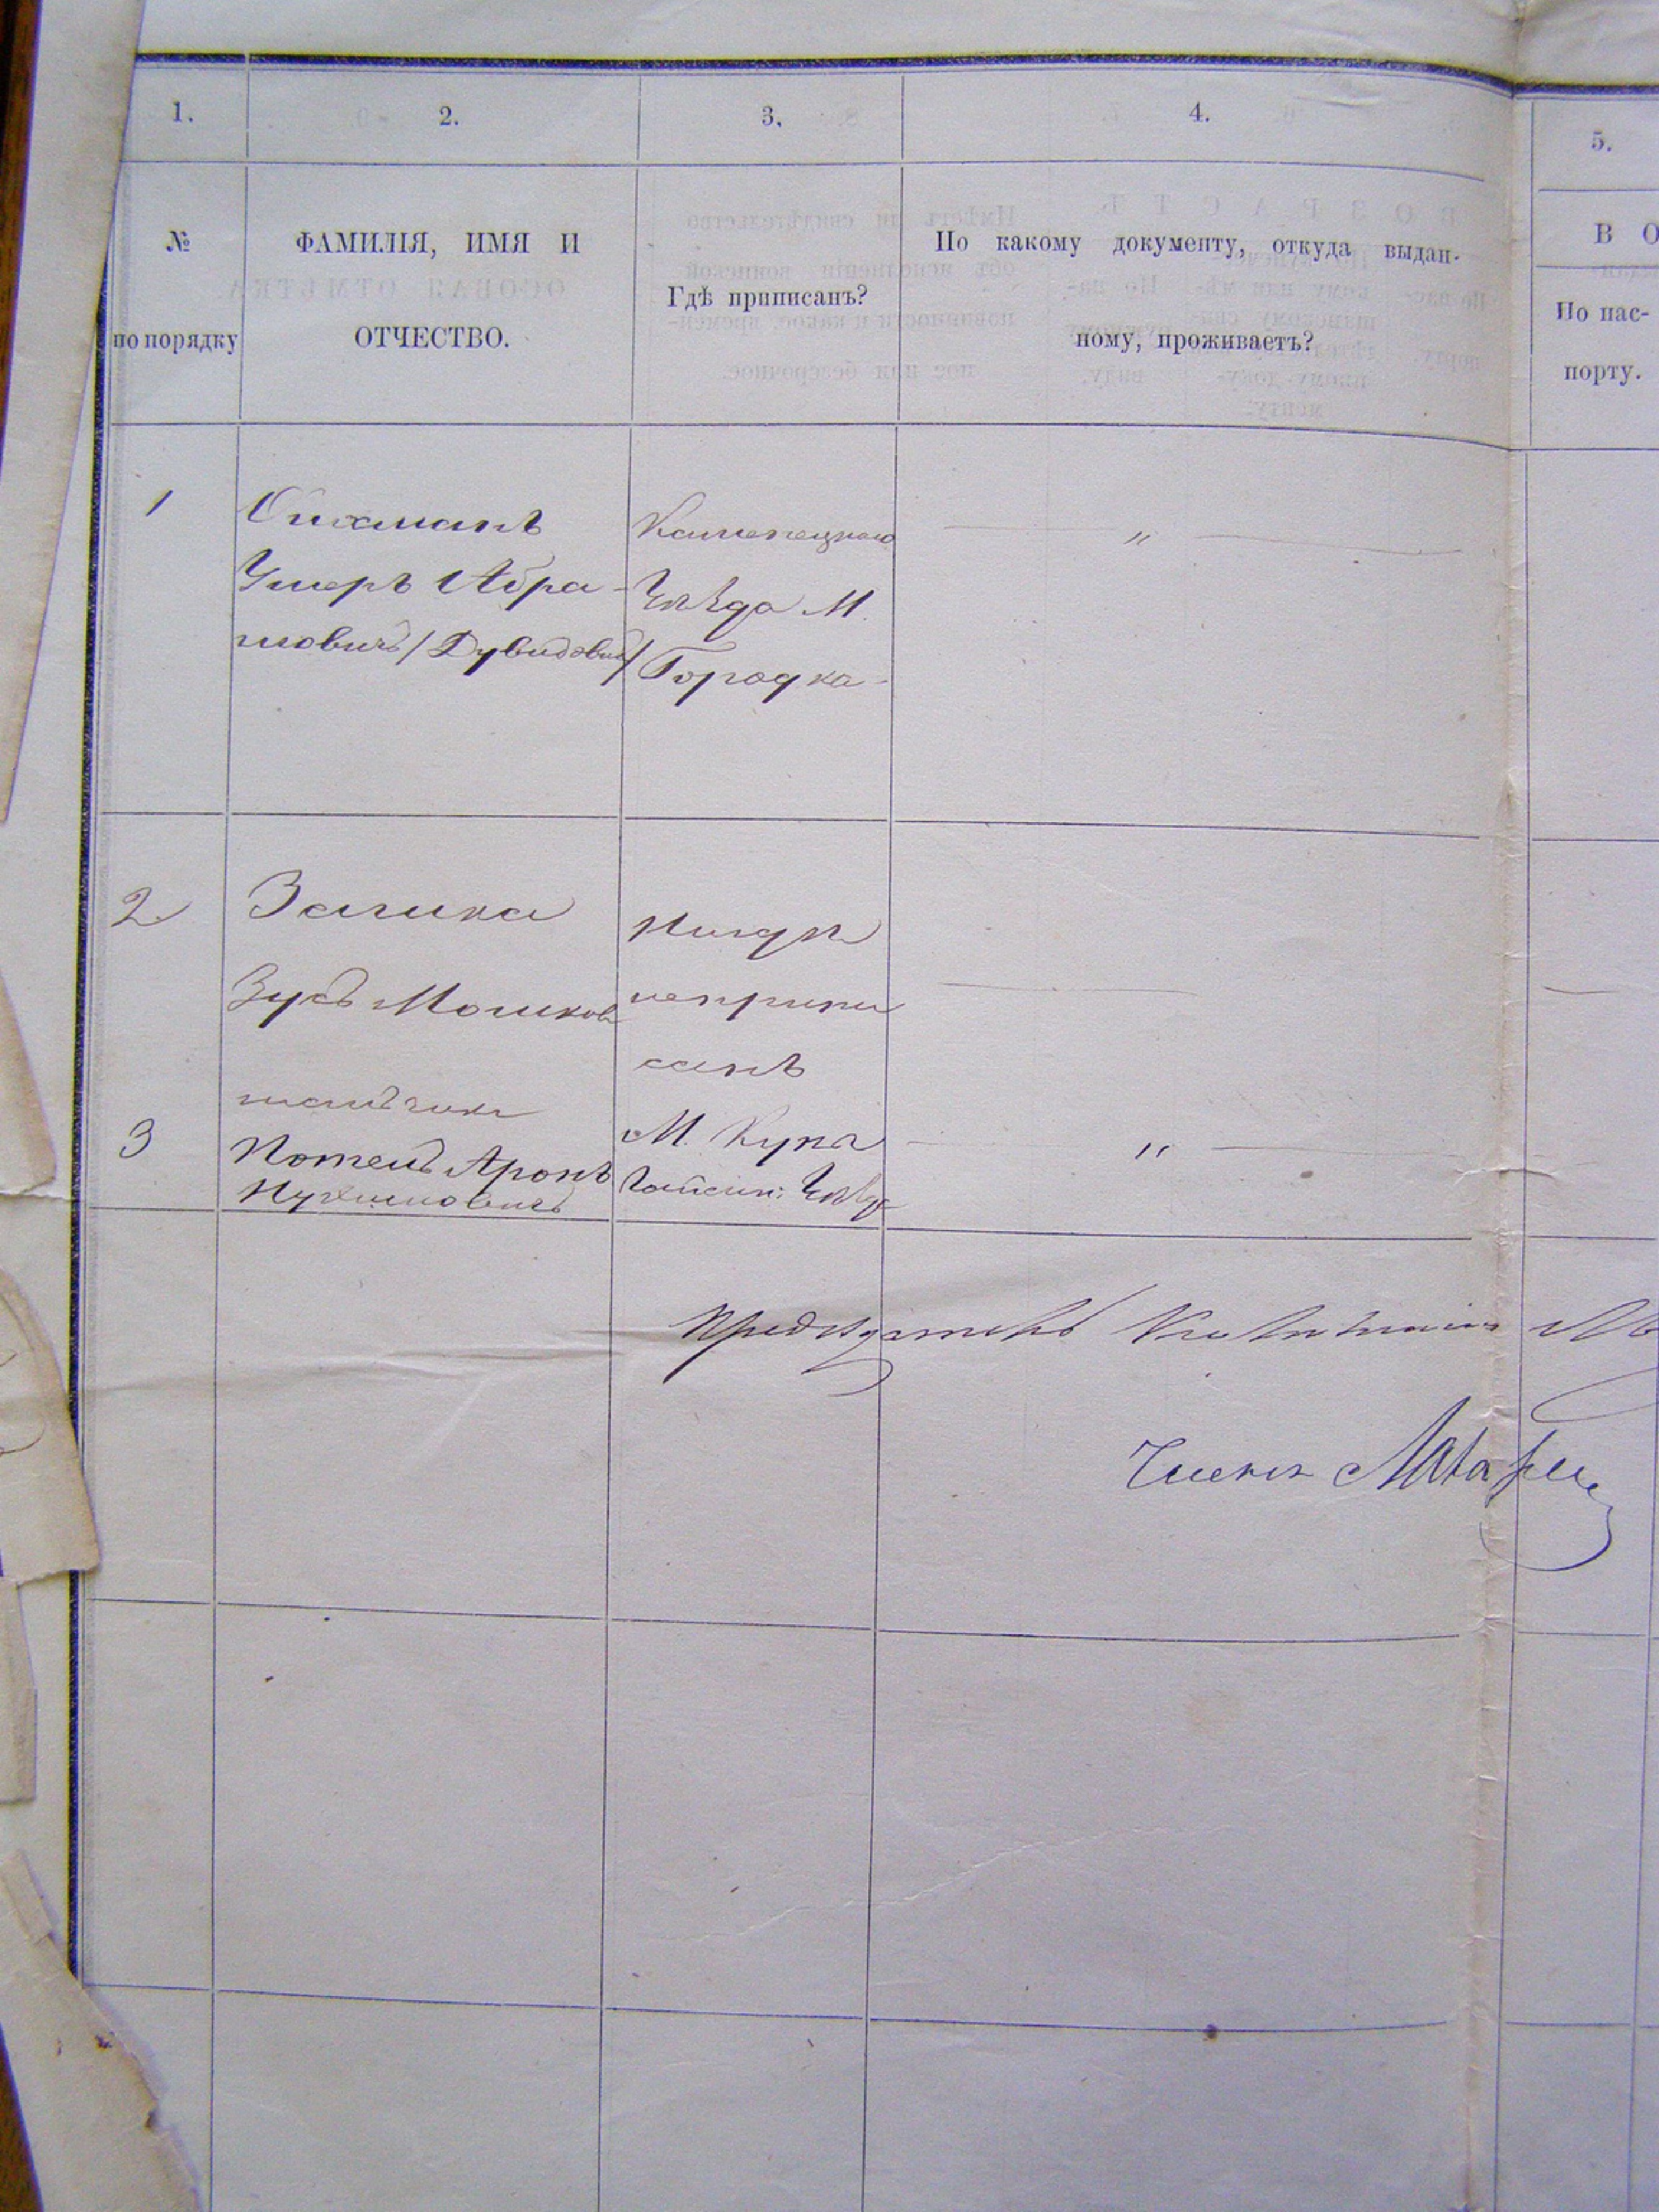 1.
2.
3.
4.
5.
№
по порядку
ФАМИЛІЯ, ИМЯ И
ОТЧЕСТВО.
Гдѣ приписанъ?
По какому документу, откуда выдан-
ному, проживаетъ?
В О
По пас-
порту.
1
Умеръ Абра-
мовичъ /Дувидович/
Каменецкаго
Уѣзда М.
Городка
"
2
Заика
Зусь Мошков
Нигдѣ
неприпи
санъ
3
Аронъ
Нухимовичъ
М. Куна
Гайсин. Уѣзд
"
Предсѣдатель
Членъ